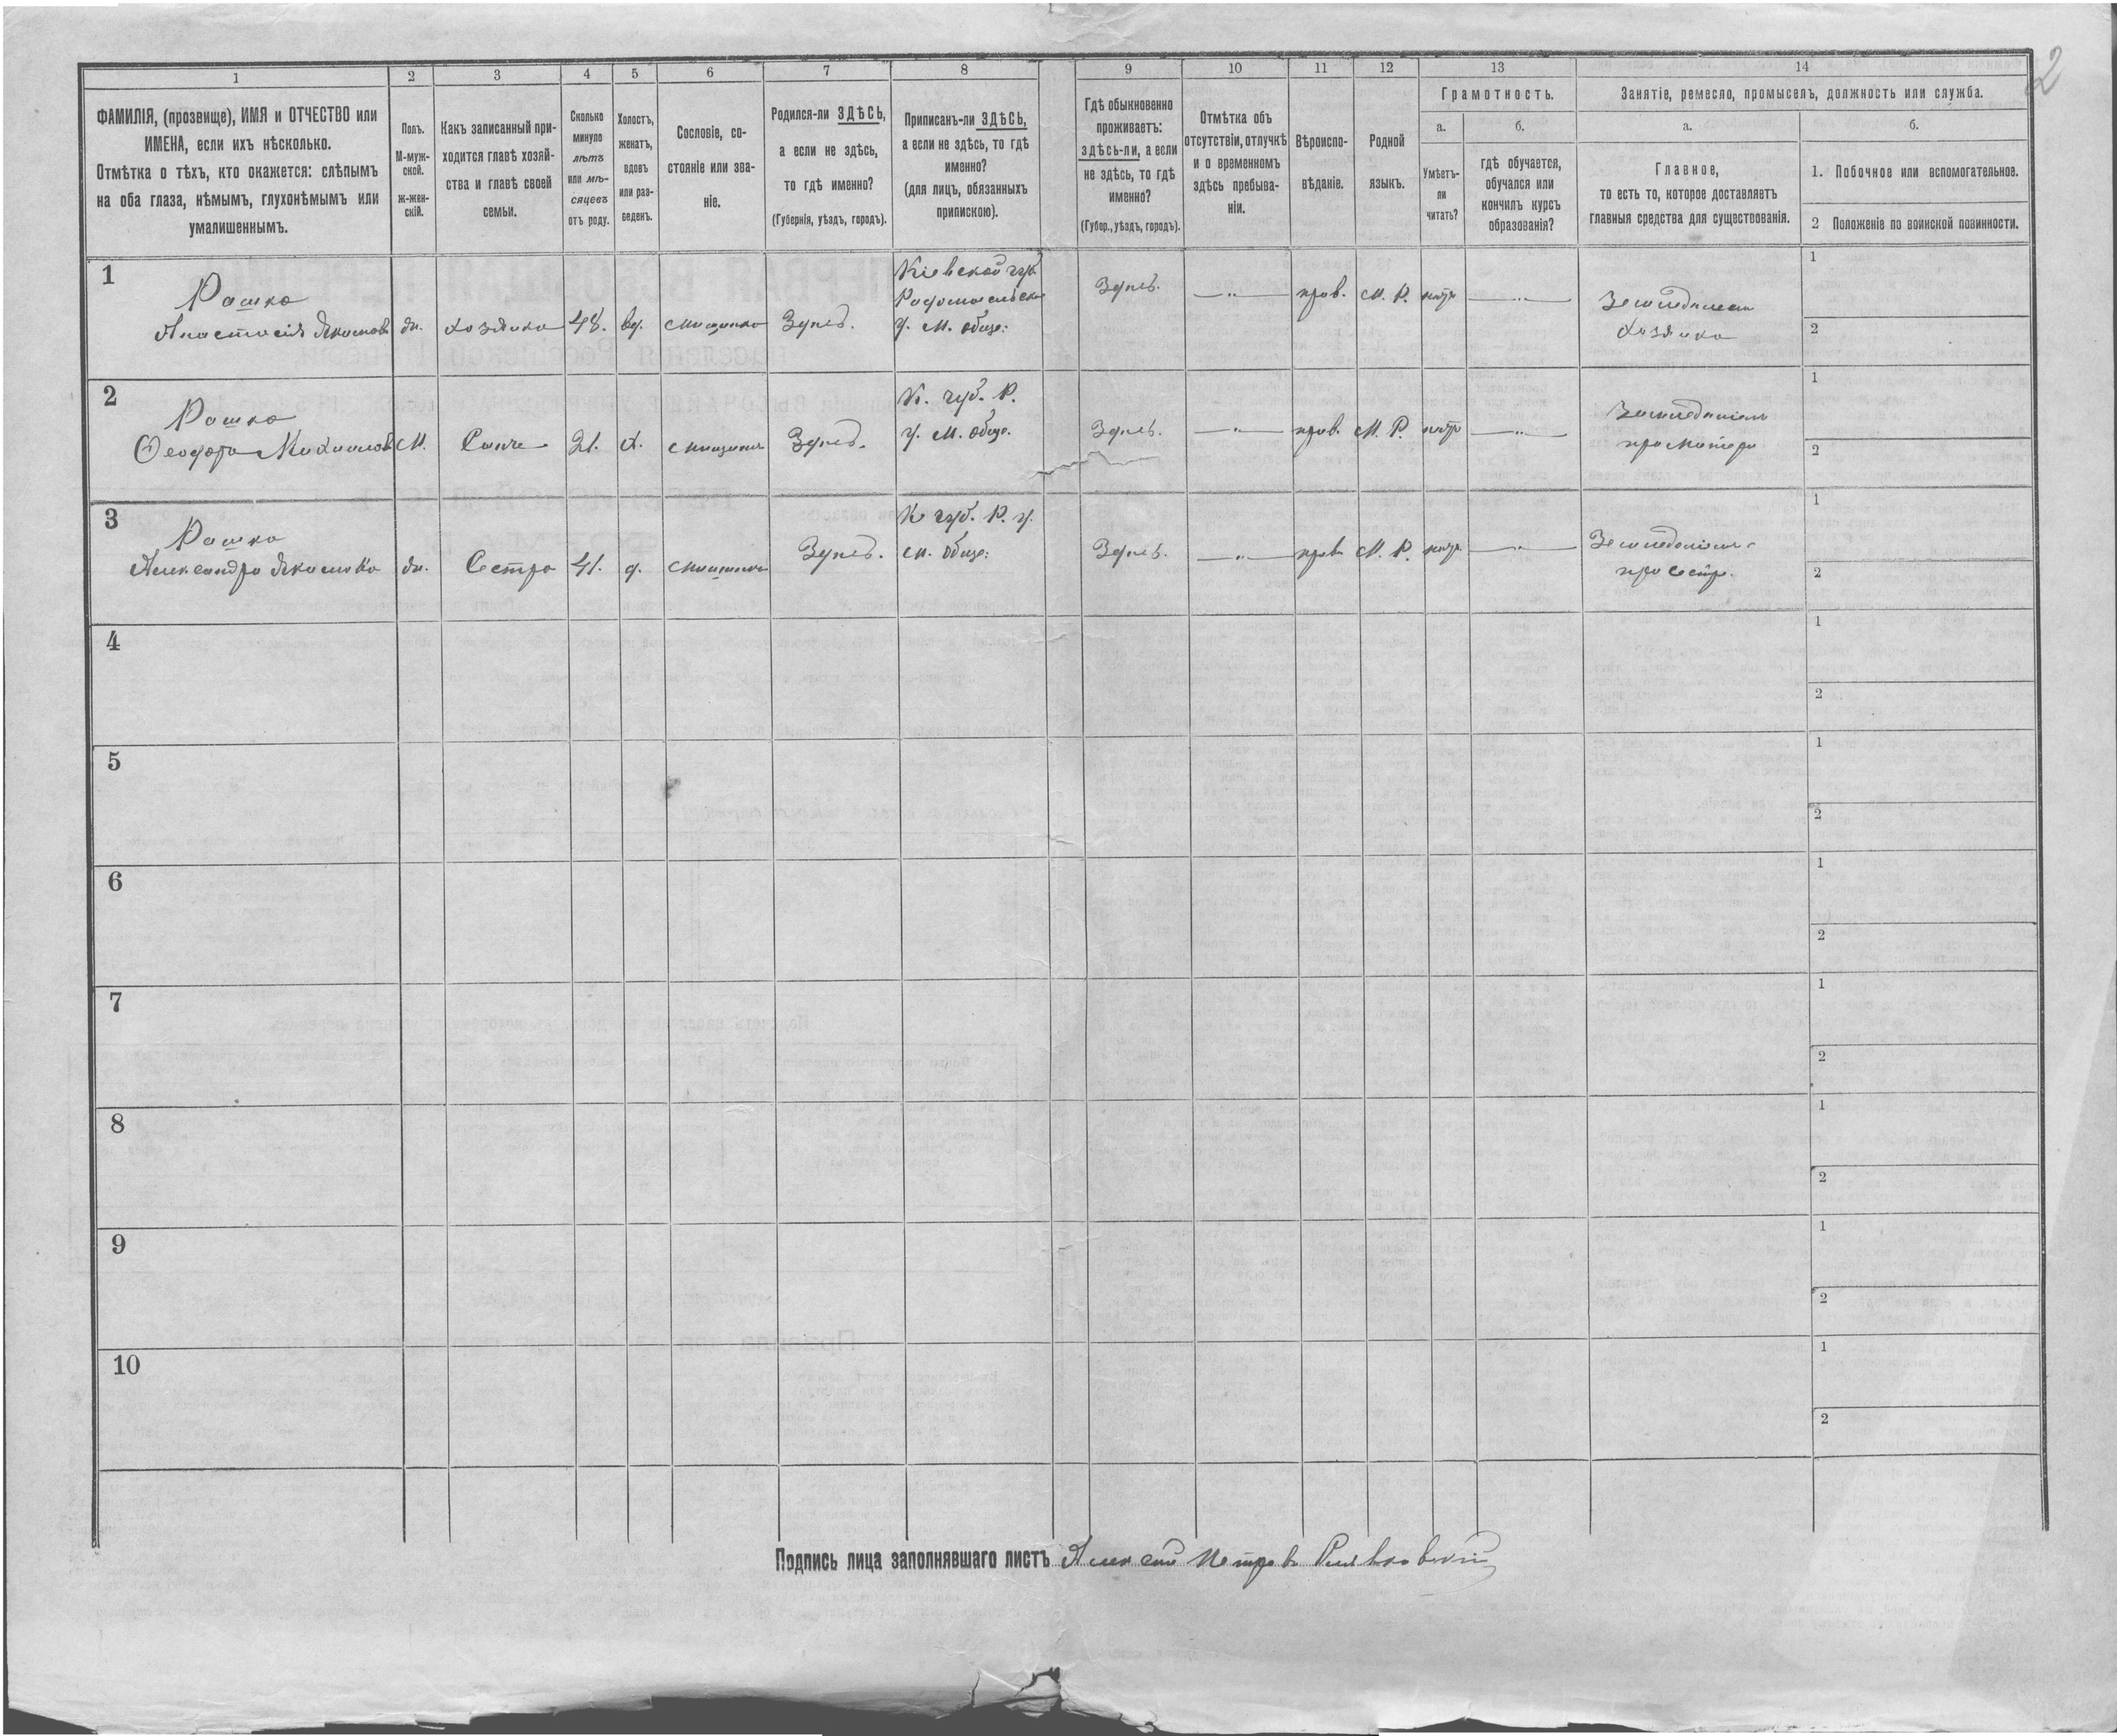 2
1 2 3 4 5 6 7 8 9 10 11 12 13 14
ФАМИЛІЯ, (прозвище), ИМЯ и ОТЧЕСТВО или
ИМЕНА, если ихъ нѣсколько.
Отмѣтка о тѣхъ, кто окажется: слѣпымъ
на оба глаза, нѣмымъ, глухонѣмымъ или
умалишеннымъ.
Полъ.
М-муж-
ской.
ж-жен-
скій.
Какъ записанный при-
ходится главѣ хозяй-
ства и главѣ своей
семьи.
Сколько
минуло
лѣтъ
или мѣ-
сяцевъ
отъ роду.
Холостъ,
женатъ,
вдовъ
или раз-
веденъ.
Сословіе, со-
стояніе или зва-
ніе.
Родился-ли ЗДѢСЬ,
а если не здѣсь,
то гдѣ именно?
(Губернія, уѣздъ, городъ).
Приписанъ-ли ЗДѢСЬ,
а если не здѣсь, то гдѣ
именно?
(для лицъ, обязанныхъ
припискою).
Гдѣ обыкновенно
проживаетъ:
здѣсь-ли, а если
не здѣсь, то гдѣ
именно?
(Губер., уѣздъ, городъ).
Отмѣтка объ
отсутствіи, отлучкѣ
и о временномъ
здѣсь пребыва-
ніи.
Вѣроиспо-
вѣданіе.
Родной
языкъ.
Грамотность.
а.
Умѣетъ-
ли
читать?
б.
гдѣ обучается,
обучался или
кончилъ курсъ
образованія?
Занятіе, ремесло, промыселъ, должность или служба.
а.
Главное,
то есть то, которое доставляетъ
главныя средства для существованія.
б.
1. Побочное или вспомогательное.
2 Положеніе по воинской повинности.
1
Рашко
Анастасія Якимова
жн.
хозяйка
48.
вд.
мѣщанка
Здѣсь.
Кіевской губ.
Радомысльск
у. м. обще:
Здѣсь.
—"—
прав.
М. Р.
нѣтъ
—"—
Земледѣлец
хозяйка
1
2
2
Рашко
Ѳеодоръ Михаиловъ
М.
Сынъ
21.
х.
мѣщанинъ
Здѣсь.
К. губ. Р.
у. м. обще.
Здѣсь.
—"—
прав.
М. Р.
нѣтъ
—"—
Земледѣліем
при матери
1
2
3
Рашко
Александра Якимова
жн.
Сестра
41.
д.
мѣщанка
Здѣсь.
К губ. Р. у.
м. обще:
Здѣсь.
—"—
прав
М. Р.
нѣтъ
—"—
Земледѣліем
при сестр.
1
2
4
1
2
5
1
2
6
1
2
7
1
2
8
1
2
9
1
2
10
1
2
Подпись лица заполнявшаго листъ Алексѣй Петровъ